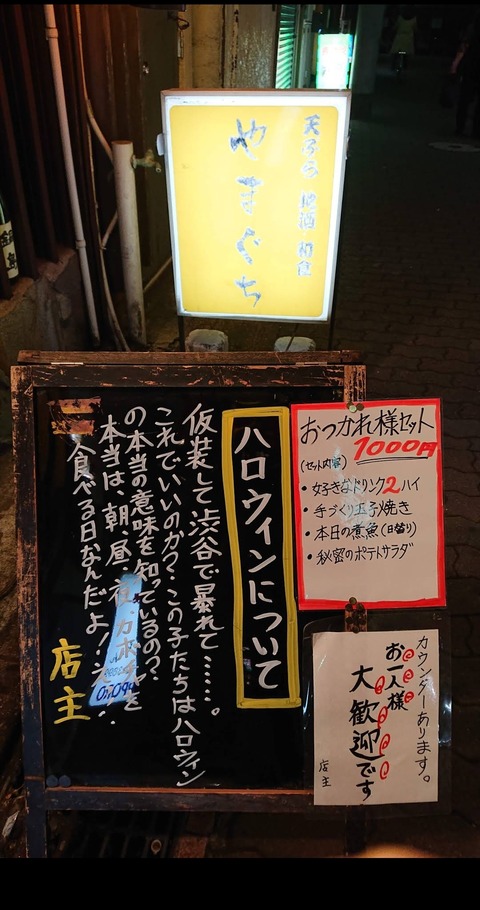 天ぷら 地酒 和食
やまぐち
ハロウィンについて
仮装して渋谷で暴れて……。
これでいいのか?この子たちはハロウィン
の本当の意味を知っているの??
本当は、朝、昼、夜、カボチャを
食べる日なんだよ!
店主
おつかれ様セット
1000円
(セット内容)
・好きなドリンク2ハイ
・手づくり玉子焼き
・本日の煮魚(日替り)
・秘密のポテトサラダ
カウンターあります。
お一人様
大歓迎です
店主